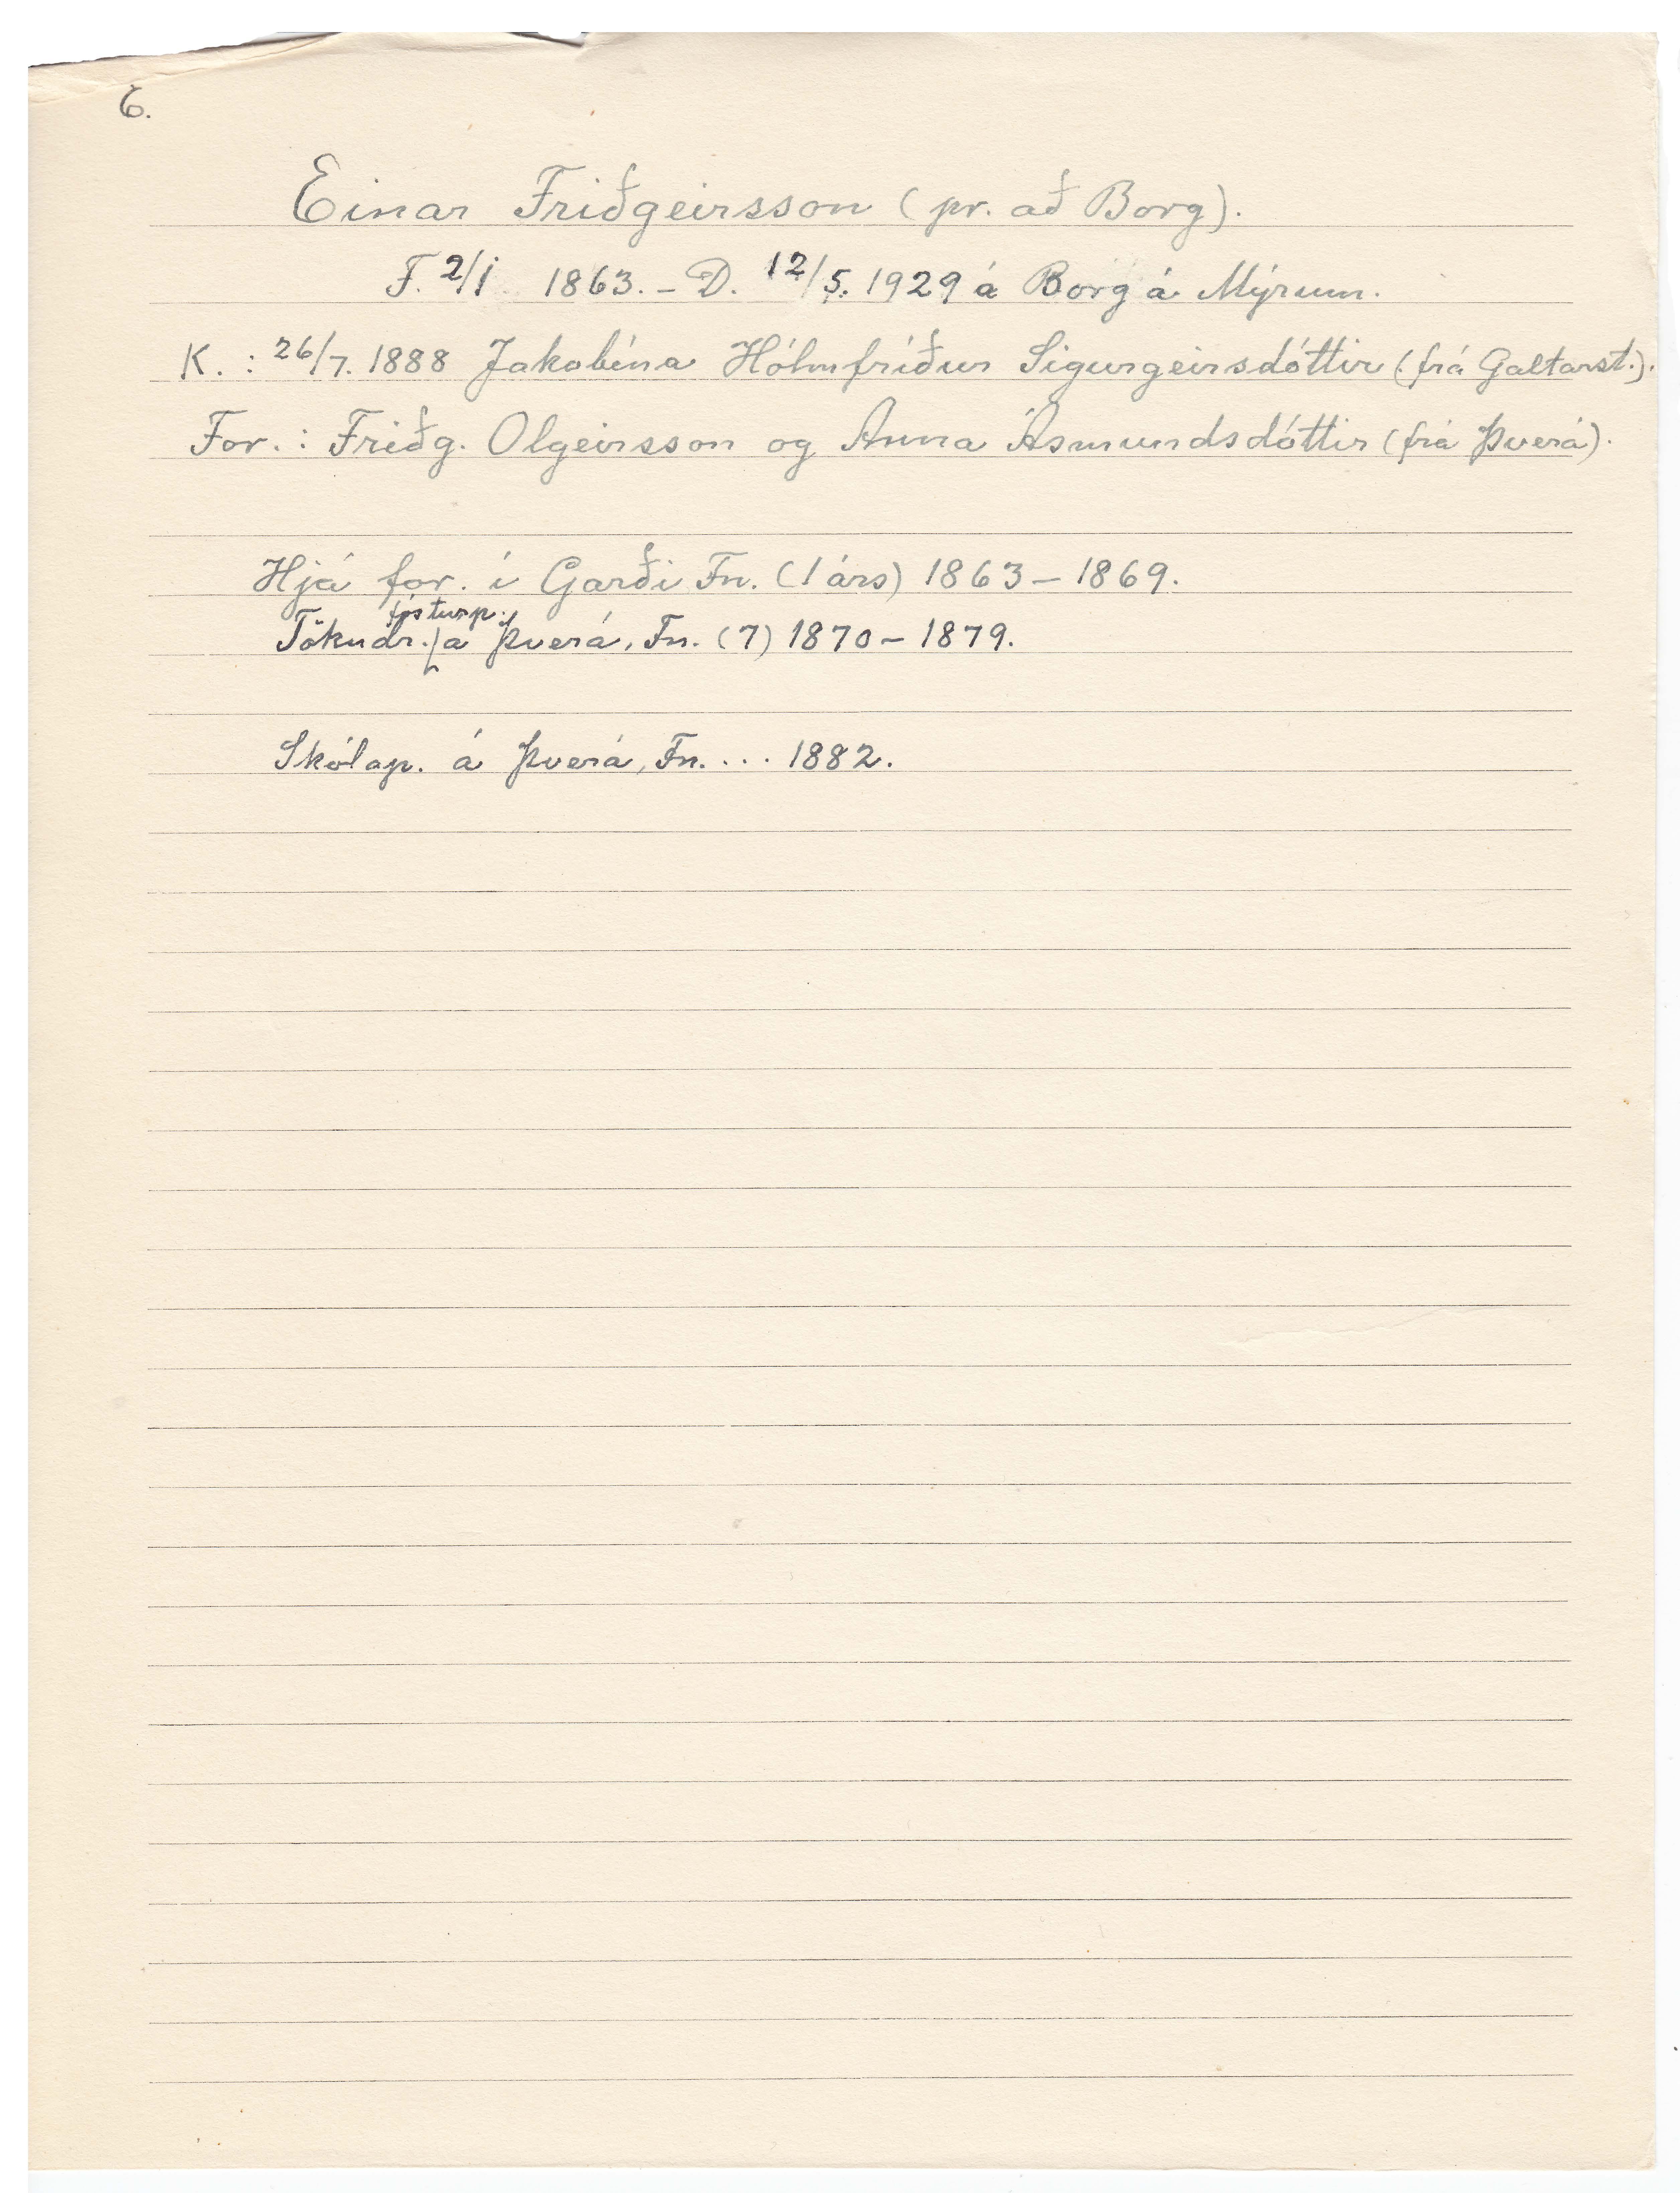 6.
Einar Friðgeirsson (pr. að Borg).
F. 2/1 1863. – D. 12/5. 1929 á Borg á Mýrum.
K. : 26/7. 1888 Jakobína Hólmfríður Sigurgeirsdóttir (frá Galtarst.).
For. : Friðg. Olgeirsson og Anna Ásmundsdóttir (frá Þverá).
Hjá for. í Garði Fn. (1 árs) 1863 – 1869.
fósturp.
Tökudr. á Þverá, Fn. (7) 1870 – 1879.
Skólap. á Þverá, Fn. ... 1882.